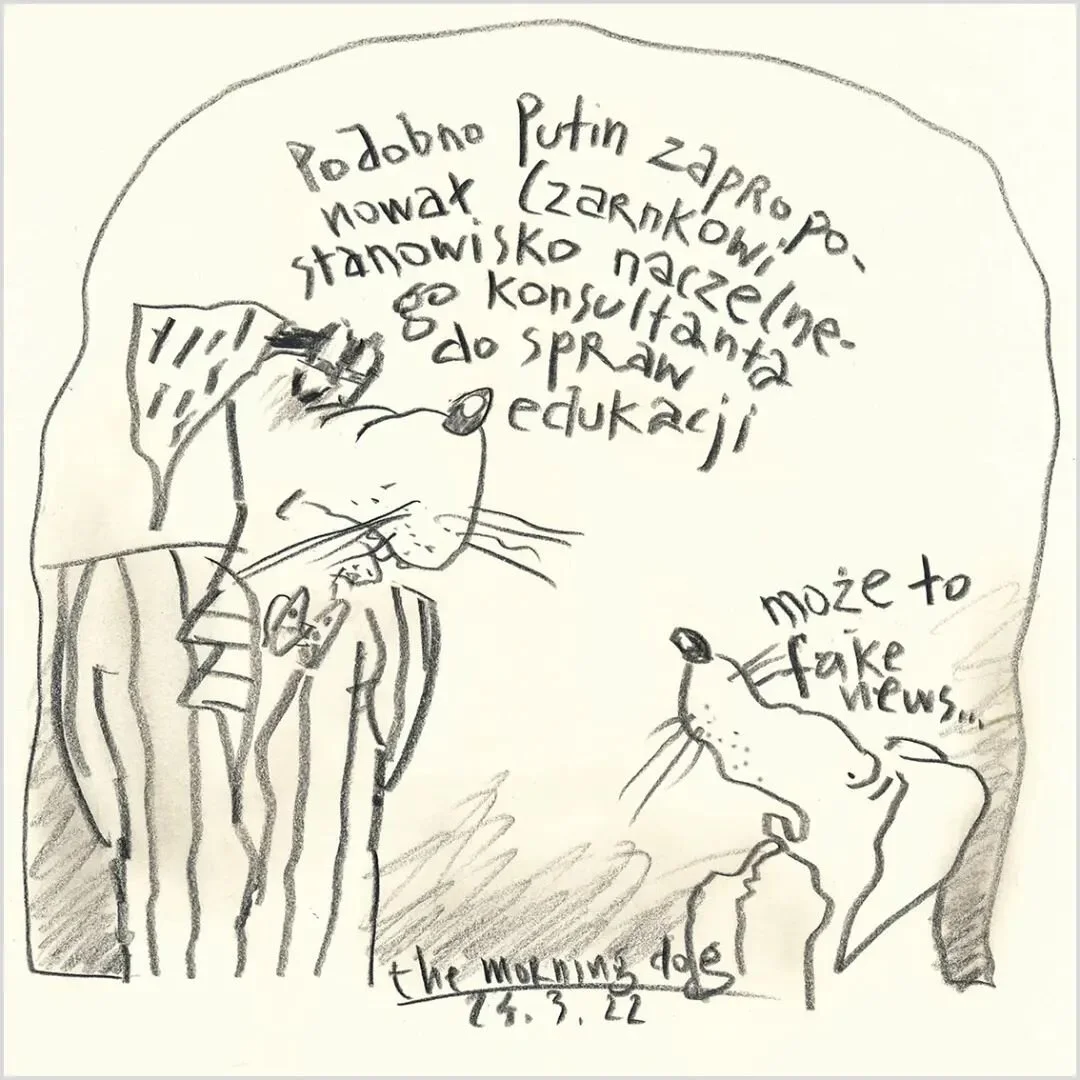 Podobno Putin zapropo-
nował Czarnkowi
stanowisko naczelne-
go konsultanta
do spraw
edukacji
może to
fake
news...
the morning dog
24.3.22